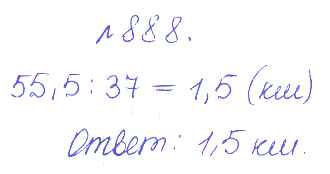 №888.
55,5 : 37 = 1,5 (км)
Ответ: 1,5 км.